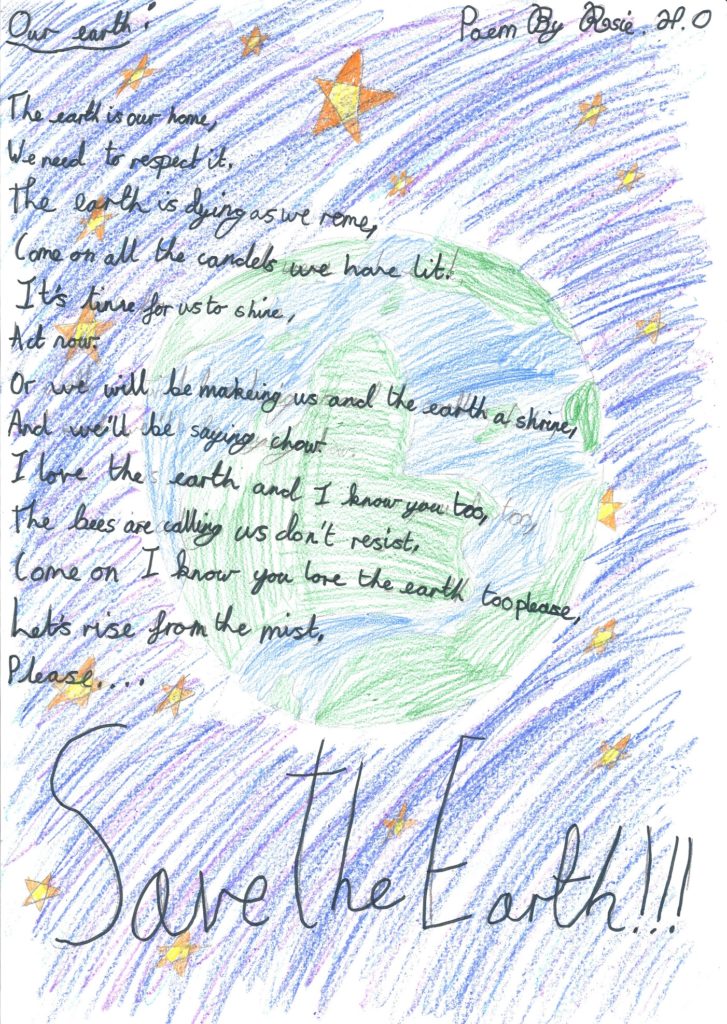 Our earth:
Poem By Rosie. H.O
The earth is our home,
We need to respect it.
The earth is dying as we rome,
Come on all the candels we have lit.
It's time for us to shine,
Act now.
Or we will be makeing us and the earth a shrine,
And we'll be saying chow.
I love the earth and I know you too,
The bees are calling us don't resist,
Come on I know you love the earth too please,
Let's rise from the mist,
Please....
Save The Earth!!!